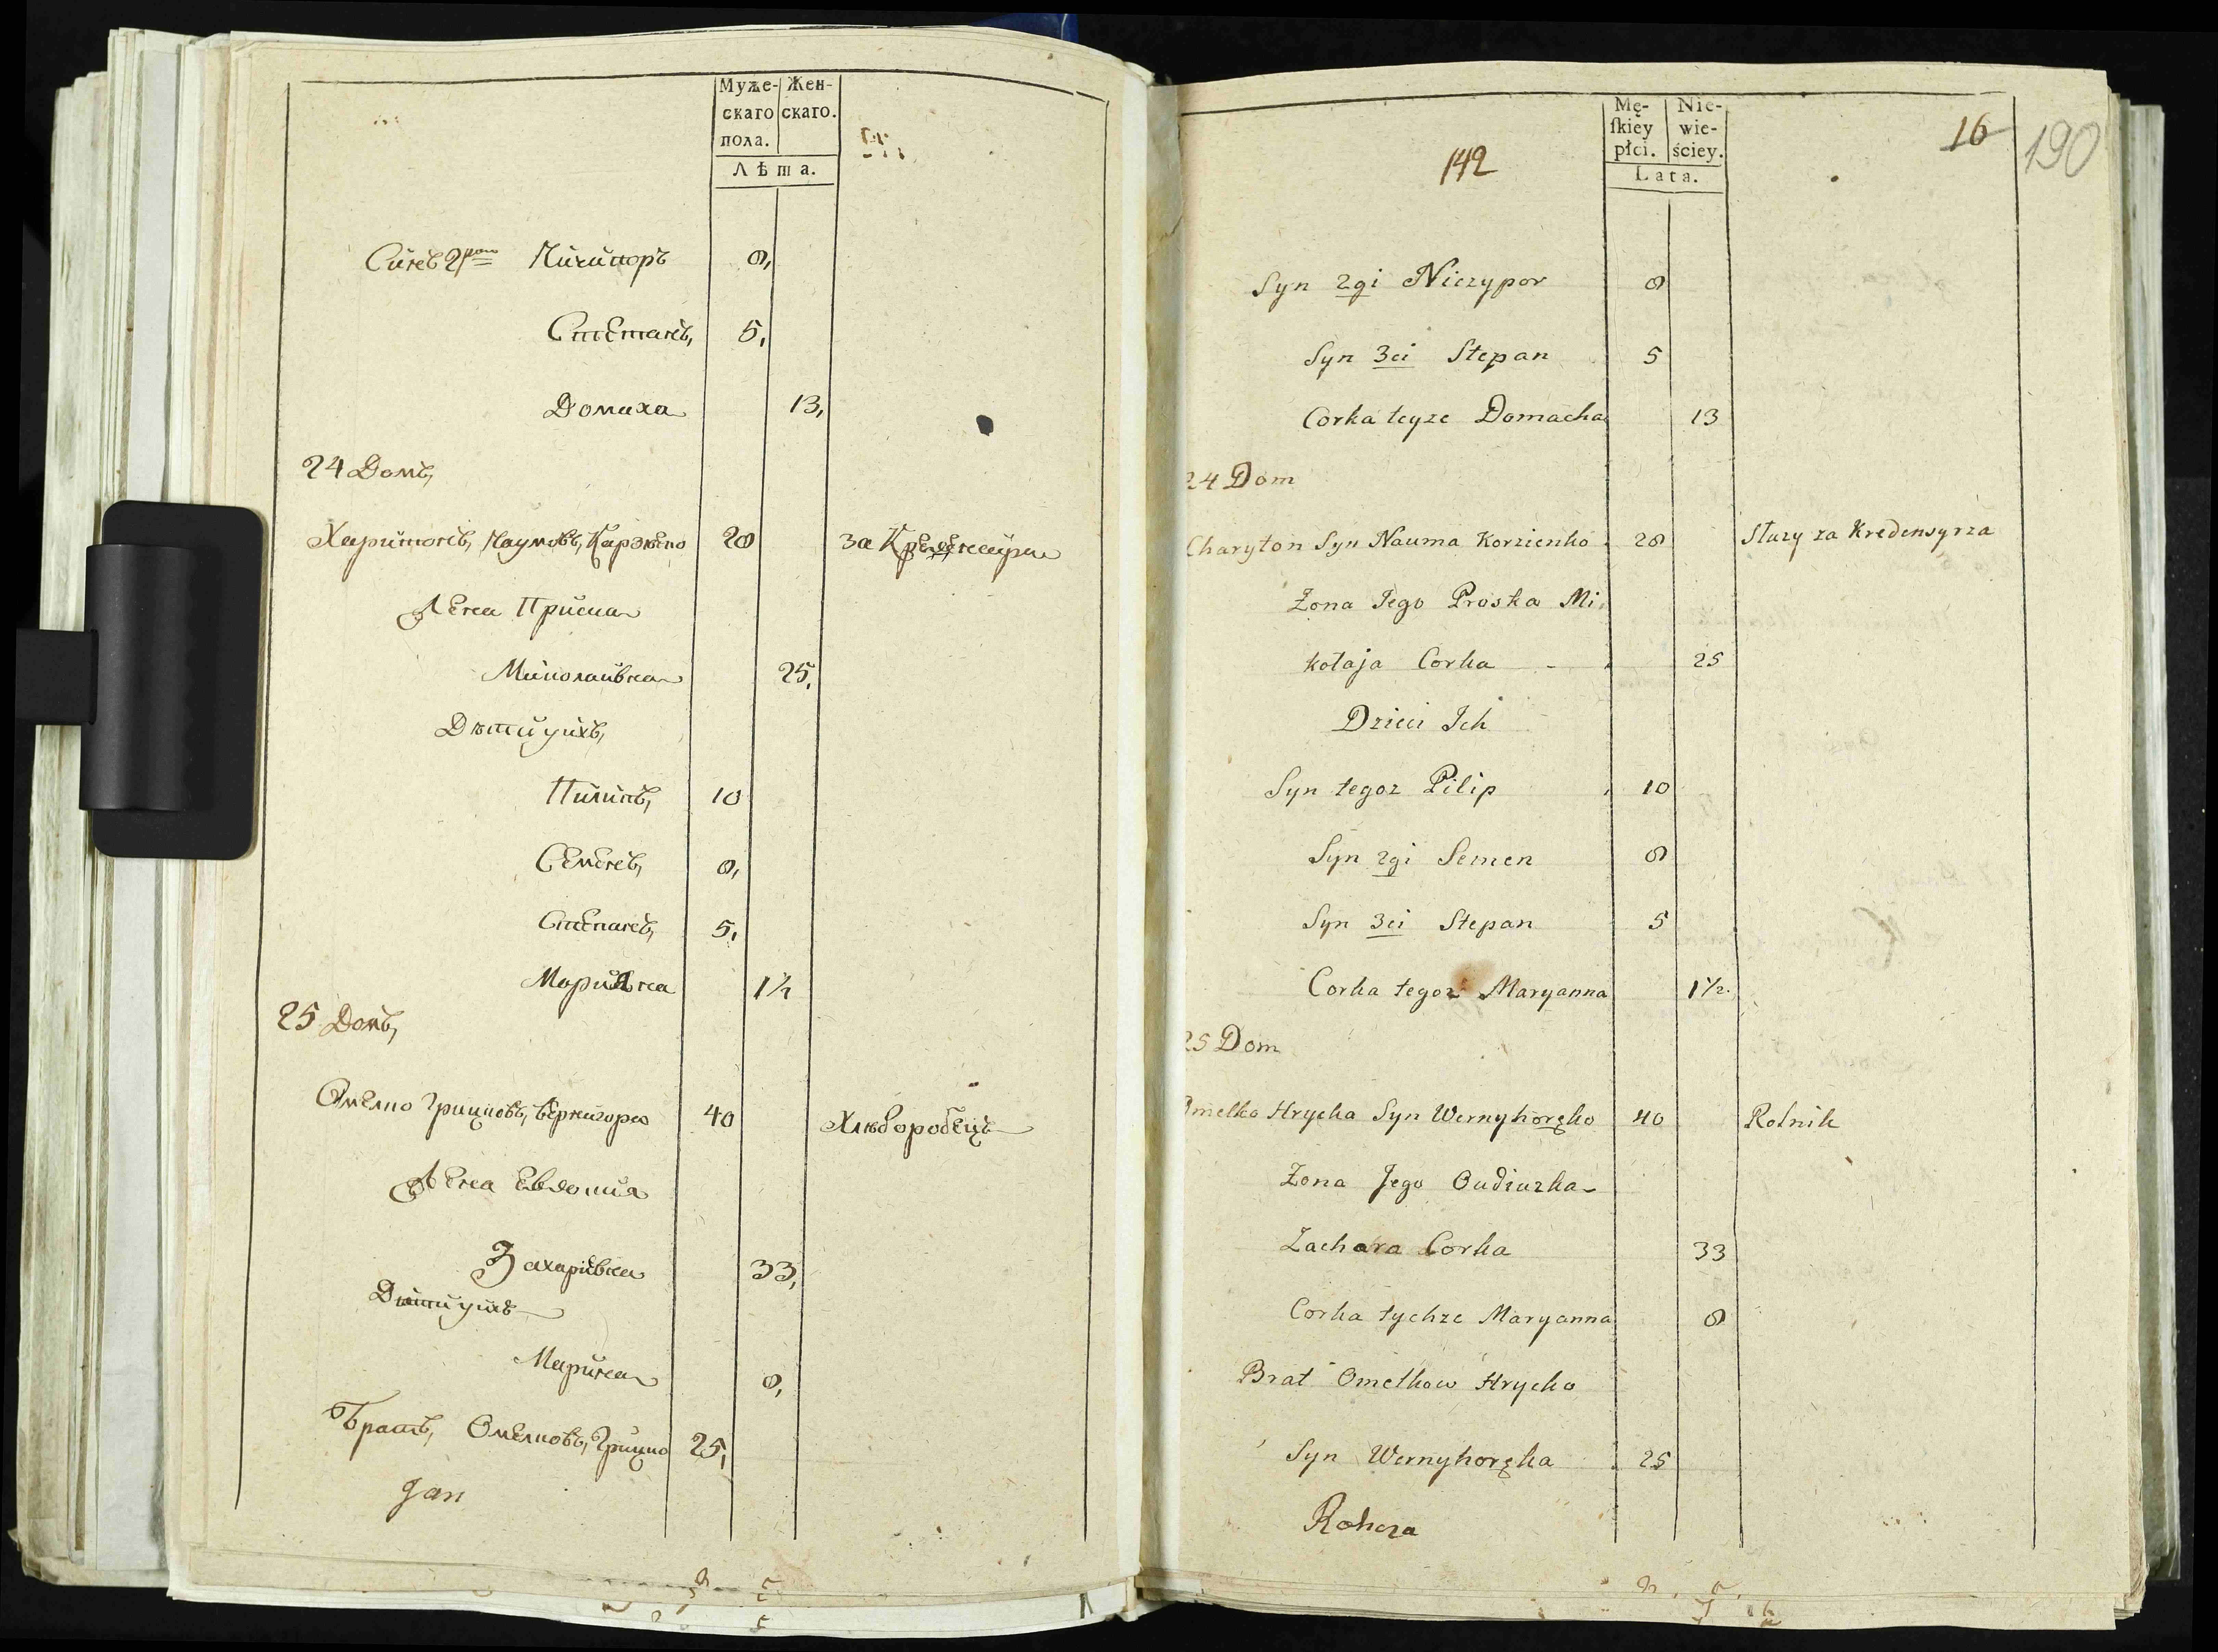 Муже-
скаго
пола.
Жен-
скаго.
Лѣта.
Синъ 2 Ничипоръ 8,
Степанъ, 5,
Домаха 13,
24 Домъ,
Харитонъ, Наумовъ, Карзѣнко 28 за Кредексира
Жена Приска
Миколаивна 25,
Дѣти ихъ,
Пилипъ, 10
Семенъ, 8,
Степанъ, 5,
Марияна 1½
25 Домъ,
Омелко Грицковъ, Вернигора 40 Хлѣборобецъ
Жена Евдокия
Захаривна 33,
Дѣти ихъ
Марина 8,
Братъ, Омелковъ, Грицко 25,
Jan
Mę-
ſkiey
płci.
Nie-
wie-
ściey.
Lata.
142
16
190
Syn 2gi Niczypor 8
Syn 3ci Stepan 5
Corka teyze Domacha 13
24 Dom
Charyton Syn Nauma Korzienko 28 Służy za Kredensyrza
Zona Jego Proska Mi
kołaja Corka 25
Dzieci Ich
Syn tegoz Pilip 10
Syn 2gi Semen 8
Syn 3ci Stepan 5
Corka tegoz Maryanna 1½.
25 Dom
Omelko Hrycka Syn Wernyhoręko 40 Rolnik
Zona Jego Oudiuzka
Zachara Corka 33
Corka tychze Maryanna 8
Brat Omelkow Hrycko
Syn Wernyhoręka 25
Rohoza